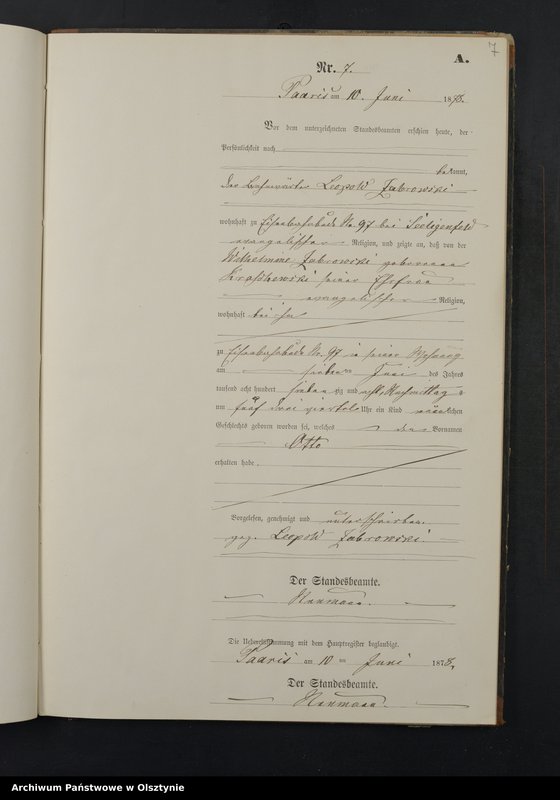 7
A.
Nr. 7.
Paaris am 10. Juni 1878.
Vor dem unterzeichneten Standesbeamten erschien heute, der
Persönlichkeit nach
bekannt,
der Bahnwärter Leopold Zabrowski
wohnhaft zu Eisenbahnbude No 97 bei Seeligenfeld
evangelischer Religion, und zeigte an, daß von der
Wilhelmine Zabrowski geborenen
seiner Ehefrau
evangelischer Religion,
wohnhaft bei ihm
zu Eisenbahnbude No. 97 in seiner Wohnung
am siebenten Juni des Jahres
tausend acht hundert sieben zig und acht, Nachmittags
um fünf drei viertel Uhr ein Kind männlichen
Geschlechts geboren worden sei, welches den Vornamen
Otto
erhalten habe.
Vorgelesen, genehmigt und unterschrieben
gez. Leopold Zabrowski.
Der Standesbeamte.
Die Uebereinstimmung mit dem Hauptregister beglaubigt.
Paaris am 10 ten Juni 1878,
Der Standesbeamte.
Archiwum Państwowe w Olsztynie